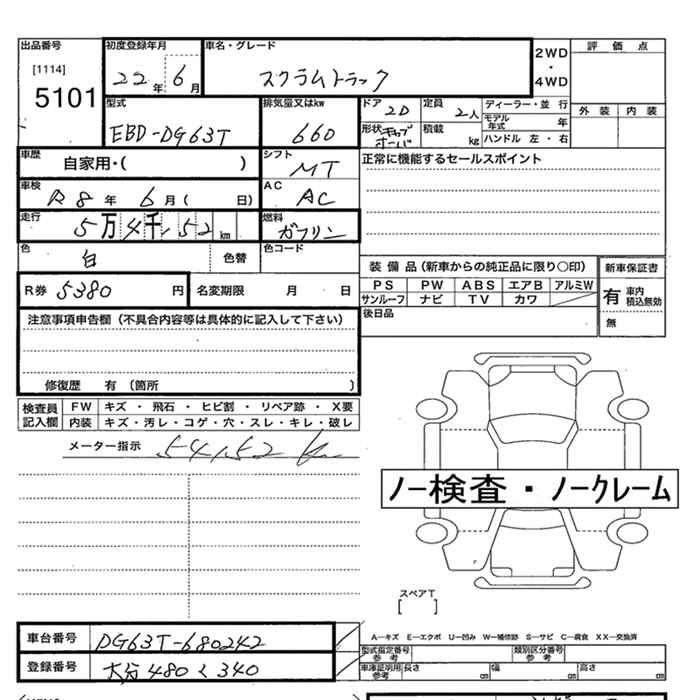 出品番号 初度登録年月 車名・グレード 2WD・4WD 評価点
[1114]
5101 22年 6月 スクラムトラック
型式 排気量又はkw ドア 2D 定員 2人 ディーラー・並行 外装 内装
EBD-DG63T 660 形状 キャブオーバ 積載 kg モデル年式 年
ハンドル 左・右
車歴 自家用・( ) シフト MT 正常に機能するセールスポイント
車検 R8年 6月( 日) AC AC
走行 5万4千,152km 燃料 ガソリン
色 白 色替 色コード
装備品(新車からの純正品に限り○印) 新車保証書
R券 5380円 名変期限 月 日 PS PW ABS エアB アルミW 有 車内積込無効
サンルーフ ナビ TV カワ
注意事項申告欄(不具合内容等は具体的に記入して下さい) 後日品 無
修復歴 有(箇所 )
検査員記入欄 FW キズ・飛石・ヒビ割・リペア跡・X要
内装 キズ・汚レ・コゲ・穴・スレ・キレ・破レ
メーター指示 54,152 km
ノー検査・ノークレーム
スペアT
[ ]
A—キズ E—エクボ U—凹み W—補修跡 S—サビ C—腐食 XX—交換済
車台番号 DG63T-680242 型式指定番号 参考 類別区分番号 参考
登録番号 大分480く340 車庫証明用 参考 長さ cm 幅 cm 高さ cm